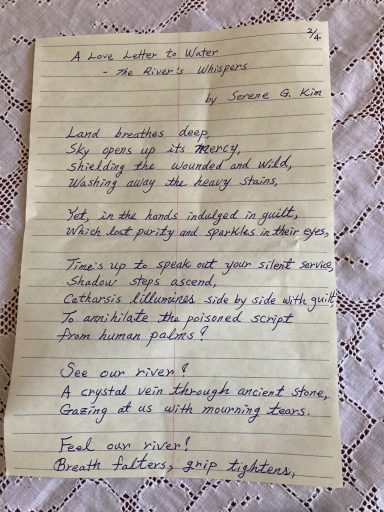 2/4
A Love Letter to Water
- The River's Whispers
by Serene G. Kim
Land breathes deep,
Sky opens up its mercy,
Shielding the wounded and wild,
Washing away the heavy stains,
Yet, in the hands indulged in guilt,
Which lost purity and sparkles in their eyes,
Time's up to speak out your silent service,
Shadow steps ascend,
Catharsis lillumines side by side with guilt,
To annihilate the poisoned script
from human palms?
See our river?
A crystal vein through ancient stone,
Gazing at us with mourning tears.
Feel our river!
Breath falters, grip tightens,